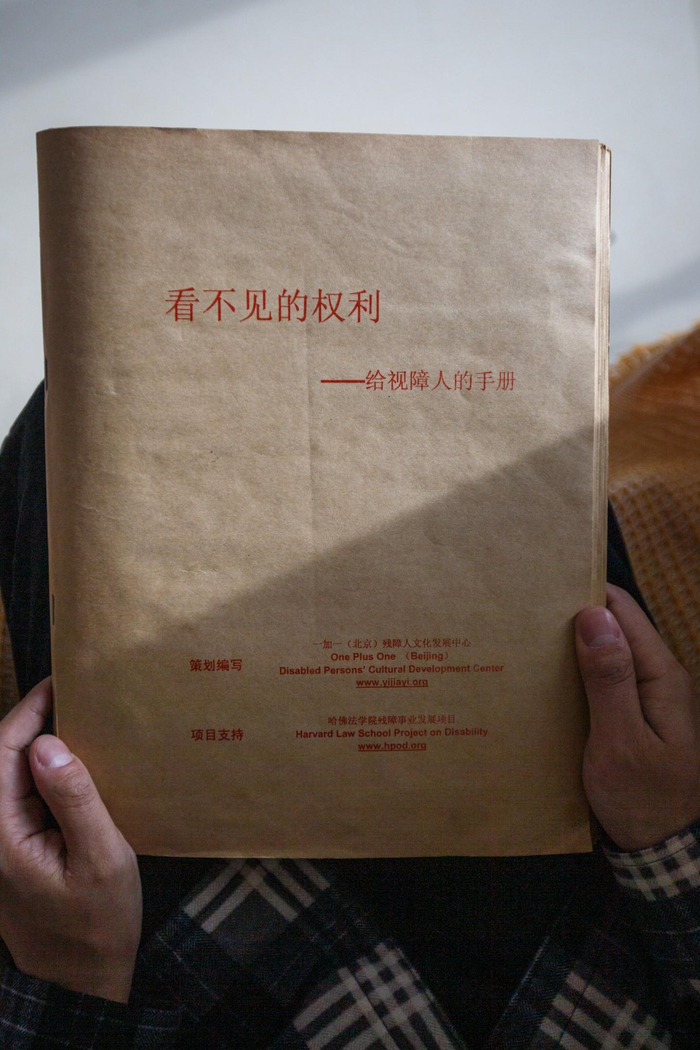 看不见的权利
——给视障人的手册
策划编写
一加一（北京）残障人文化发展中心
One Plus One （Beijing）
Disabled Persons' Cultural Development Center
www.yijiayi.org
项目支持
哈佛法学院残障事业发展项目
Harvard Law School Project on Disability
www.hpod.org